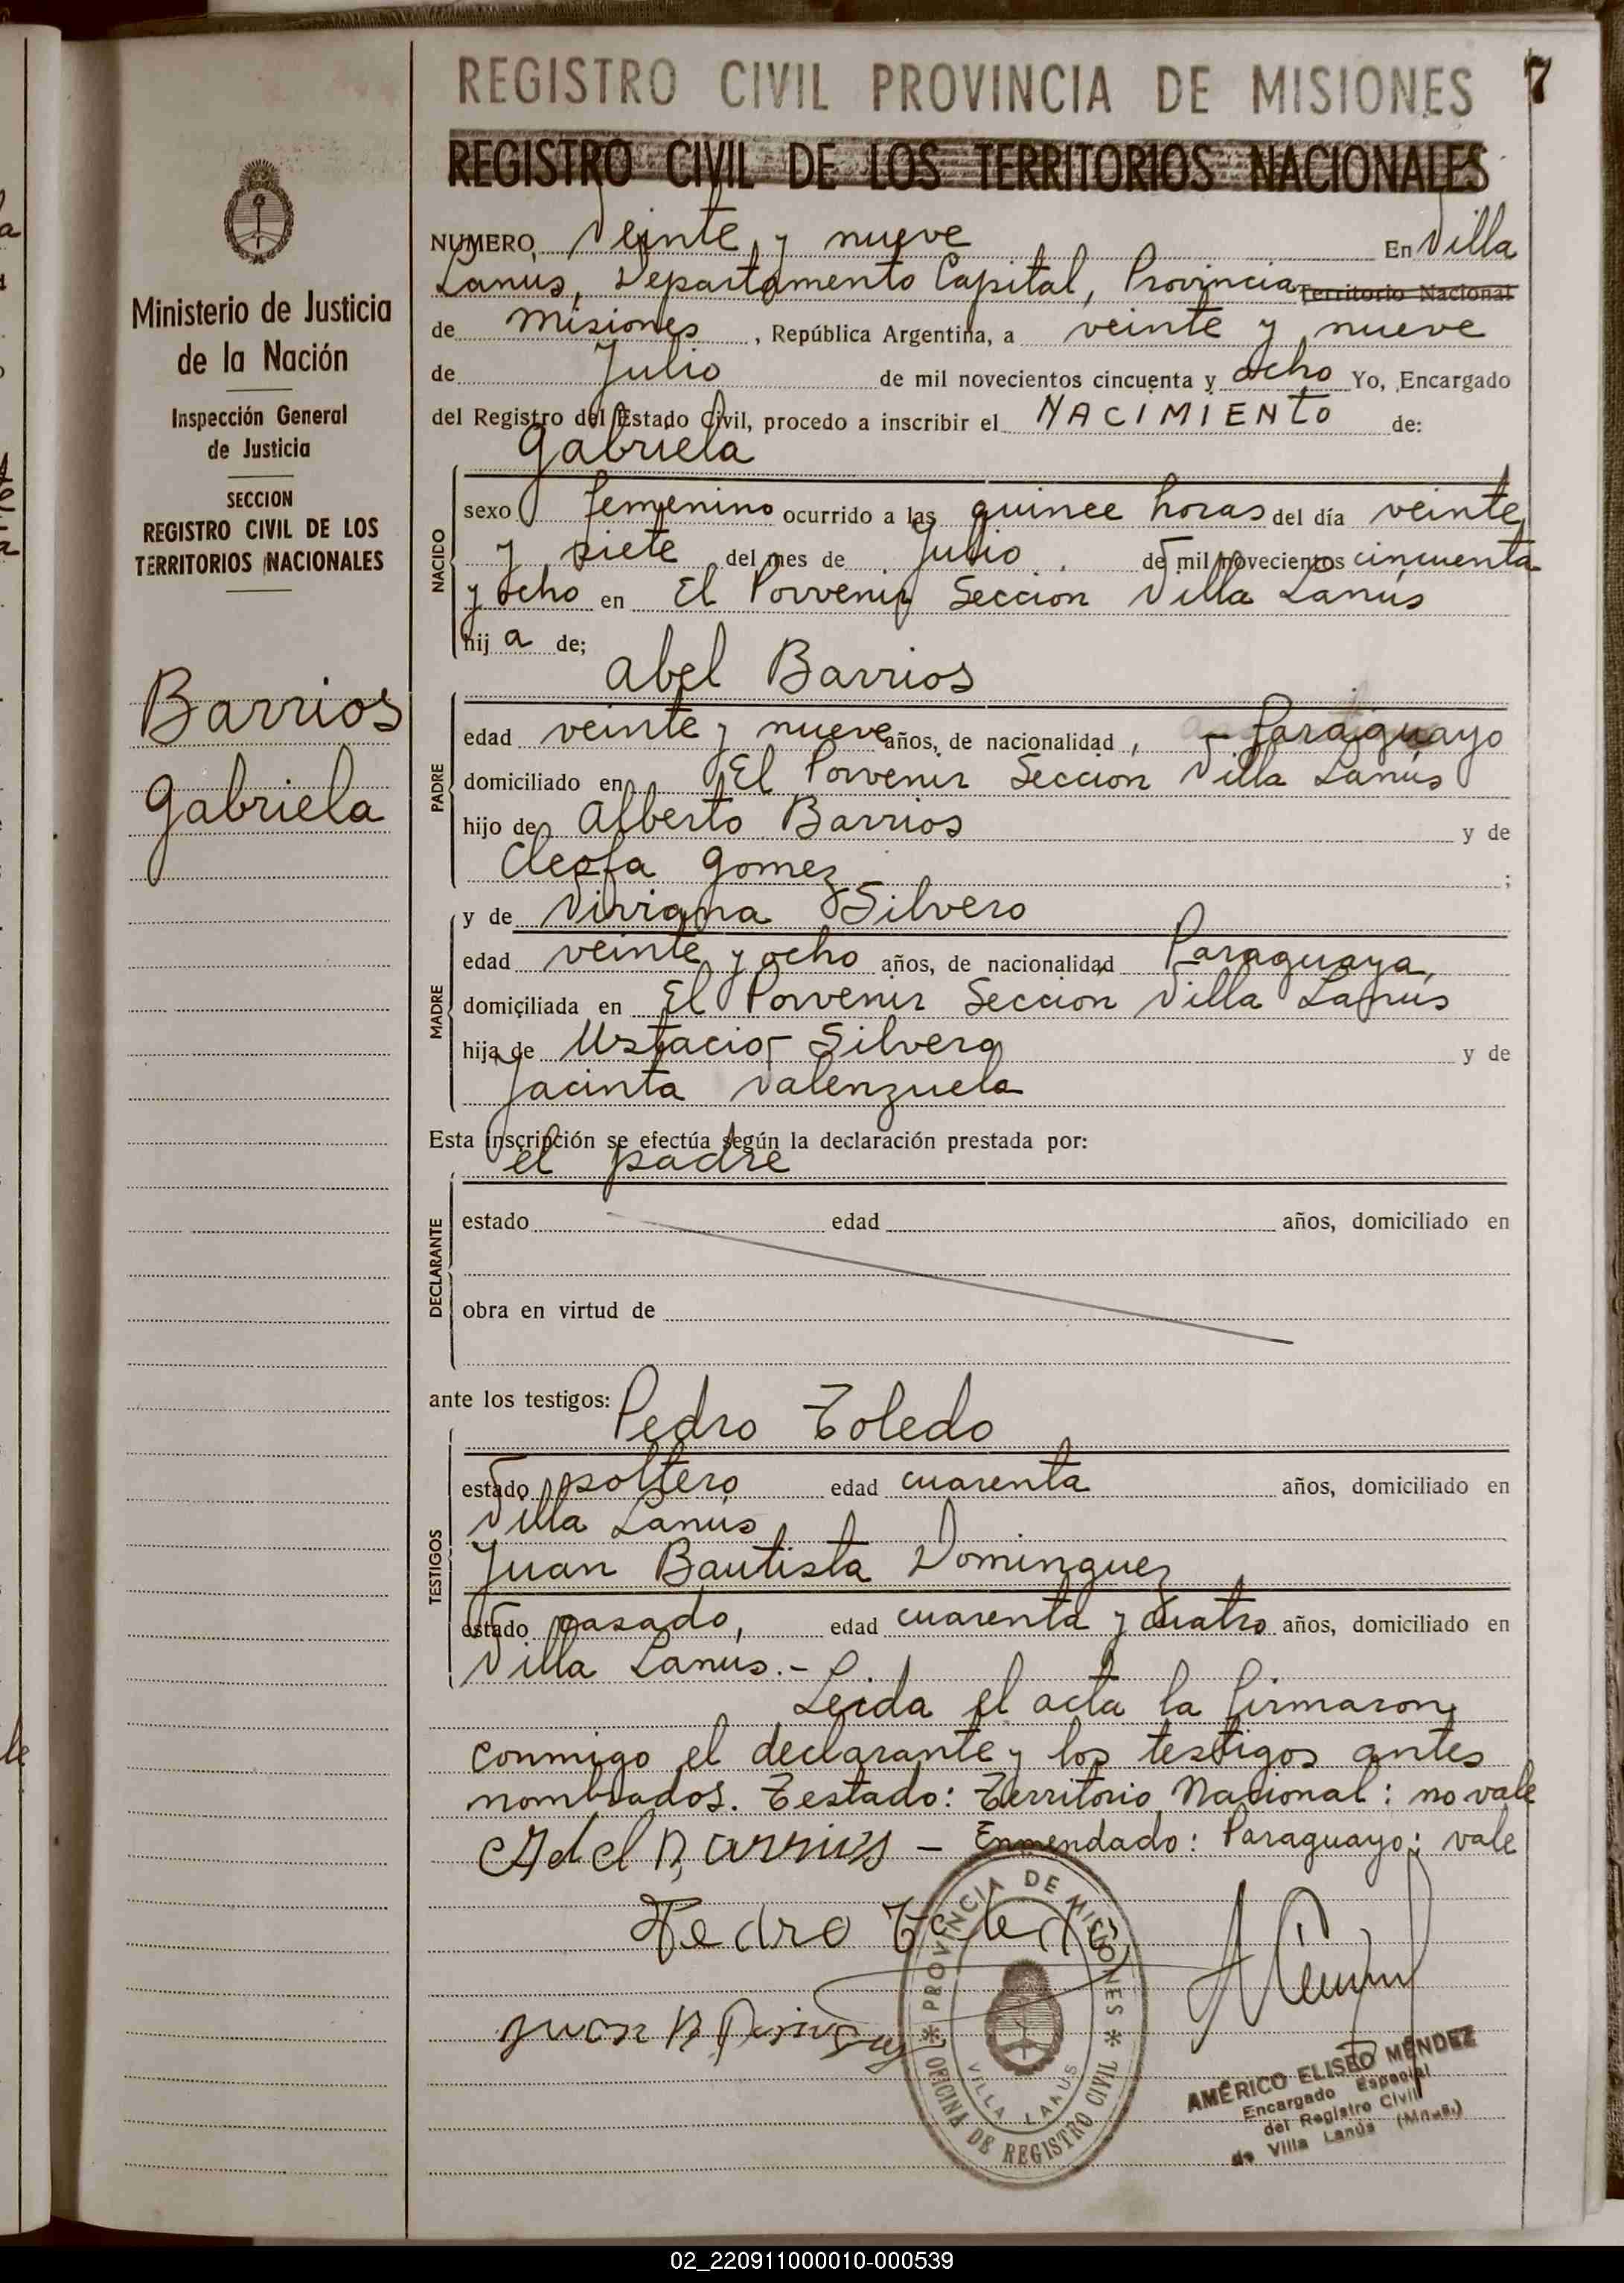 REGISTRO CIVIL PROVINCIA DE MISIONES 7
REGISTRO CIVIL DE LOS TERRITORIOS NACIONALES
Ministerio de Justicia
de la Nación
Inspección General
de Justicia
SECCION
REGISTRO CIVIL DE LOS
TERRITORIOS NACIONALES
Barrios
Gabriela
NUMERO Veinte y nueve En Villa
Lanus, Departamento Capital, Provincia Territorio Nacional
de Misiones, República Argentina, a veinte y nueve
de Julio de mil novecientos cincuenta y ocho Yo, Encargado
del Registro del Estado Civil, procedo a inscribir el NACIMIENTO de:
Gabriela
NACIDO
sexo femenino ocurrido a las quince horas del día veinte
y siete del mes de Julio de mil novecientos cincuenta
y ocho en El Porvenir Seccion Villa Lanús
hija de;
Abel Barrios
PADRE
edad veinte y nueve años, de nacionalidad, - Paraguayo
domiciliado en El Porvenir Seccion Villa Lanús
hijo de Alberto Barrios y de
Cleofa Gomez ;
y de Viviana Silvero
MADRE
edad veinte y ocho años, de nacionalidad Paraguaya,
domiciliada en El Porvenir Seccion Villa Lanús
hija de Ustacio Silvero y de
Jacinta Valenzuela
Esta inscripción se efectúa según la declaración prestada por:
el padre
DECLARANTE
estado edad años, domiciliado en
obra en virtud de
ante los testigos: Pedro Toledo
TESTIGOS
estado soltero edad cuarenta años, domiciliado en
Villa Lanus
Juan Bautista Dominguez
estado casado, edad cuarenta y cuatro años, domiciliado en
Villa Lanus.-
Leida el acta la firmaron
conmigo el declarante y los testigos antes
nombrados. Testado: Territorio Nacional: no vale
Abel Barrios - Enmendado: Paraguayo: vale
Pedro Toledo
Juan B
PROVINCIA DE MISIONES
OFICINA DE REGISTRO CIVIL
VILLA LANUS
AMÉRICO ELISEO MÉNDEZ
Encargado Especial
del Registro Civil
de Villa Lanús (Mnes.)
02_220911000010-000539